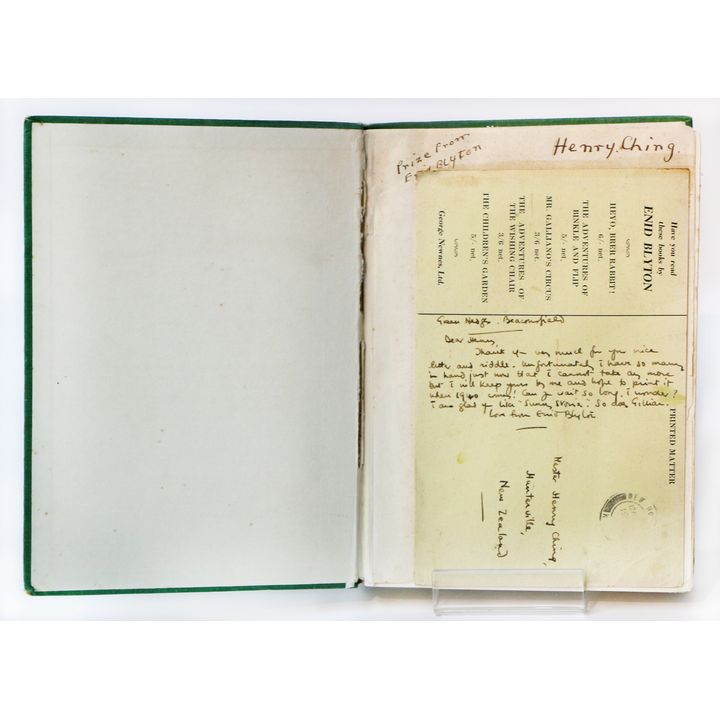 Prize from
Enid Blyton
Henry Ching.
Have you read
these books by
ENID BLYTON
HEYO, BRER RABBIT!
6/- net.
THE ADVENTURES OF
BINKLE AND FLIP
5/- net.
MR. GALLIANO'S CIRCUS
3/6 net.
THE ADVENTURES OF
THE WISHING CHAIR
3/6 net.
THE CHILDREN'S GARDEN
5/- net.
George Newnes, Ltd.
PRINTED MATTER
Green Hedges. Beaconsfield
Dear Henry,
Thank you very much for your nice
letter and riddle. Unfortunately i have so many
in hand just now that i cannot take any more
but i will keep yours by me and hope to print it
when 1940 comes! Can you wait so long, i wonder?
I am glad you like "Sunny Stories". So does Gillian.
Love from Enid Blyton
Master Henry Ching,
Hunterville,
New Zealand